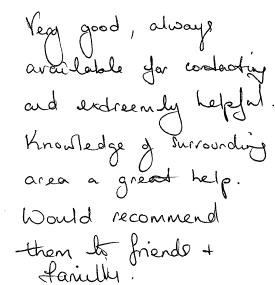 Very good, always
available for contacting
and extreemly helpful.
Knowledge of surrounding
area a great help.
Would recommend
them to friends +
familly.